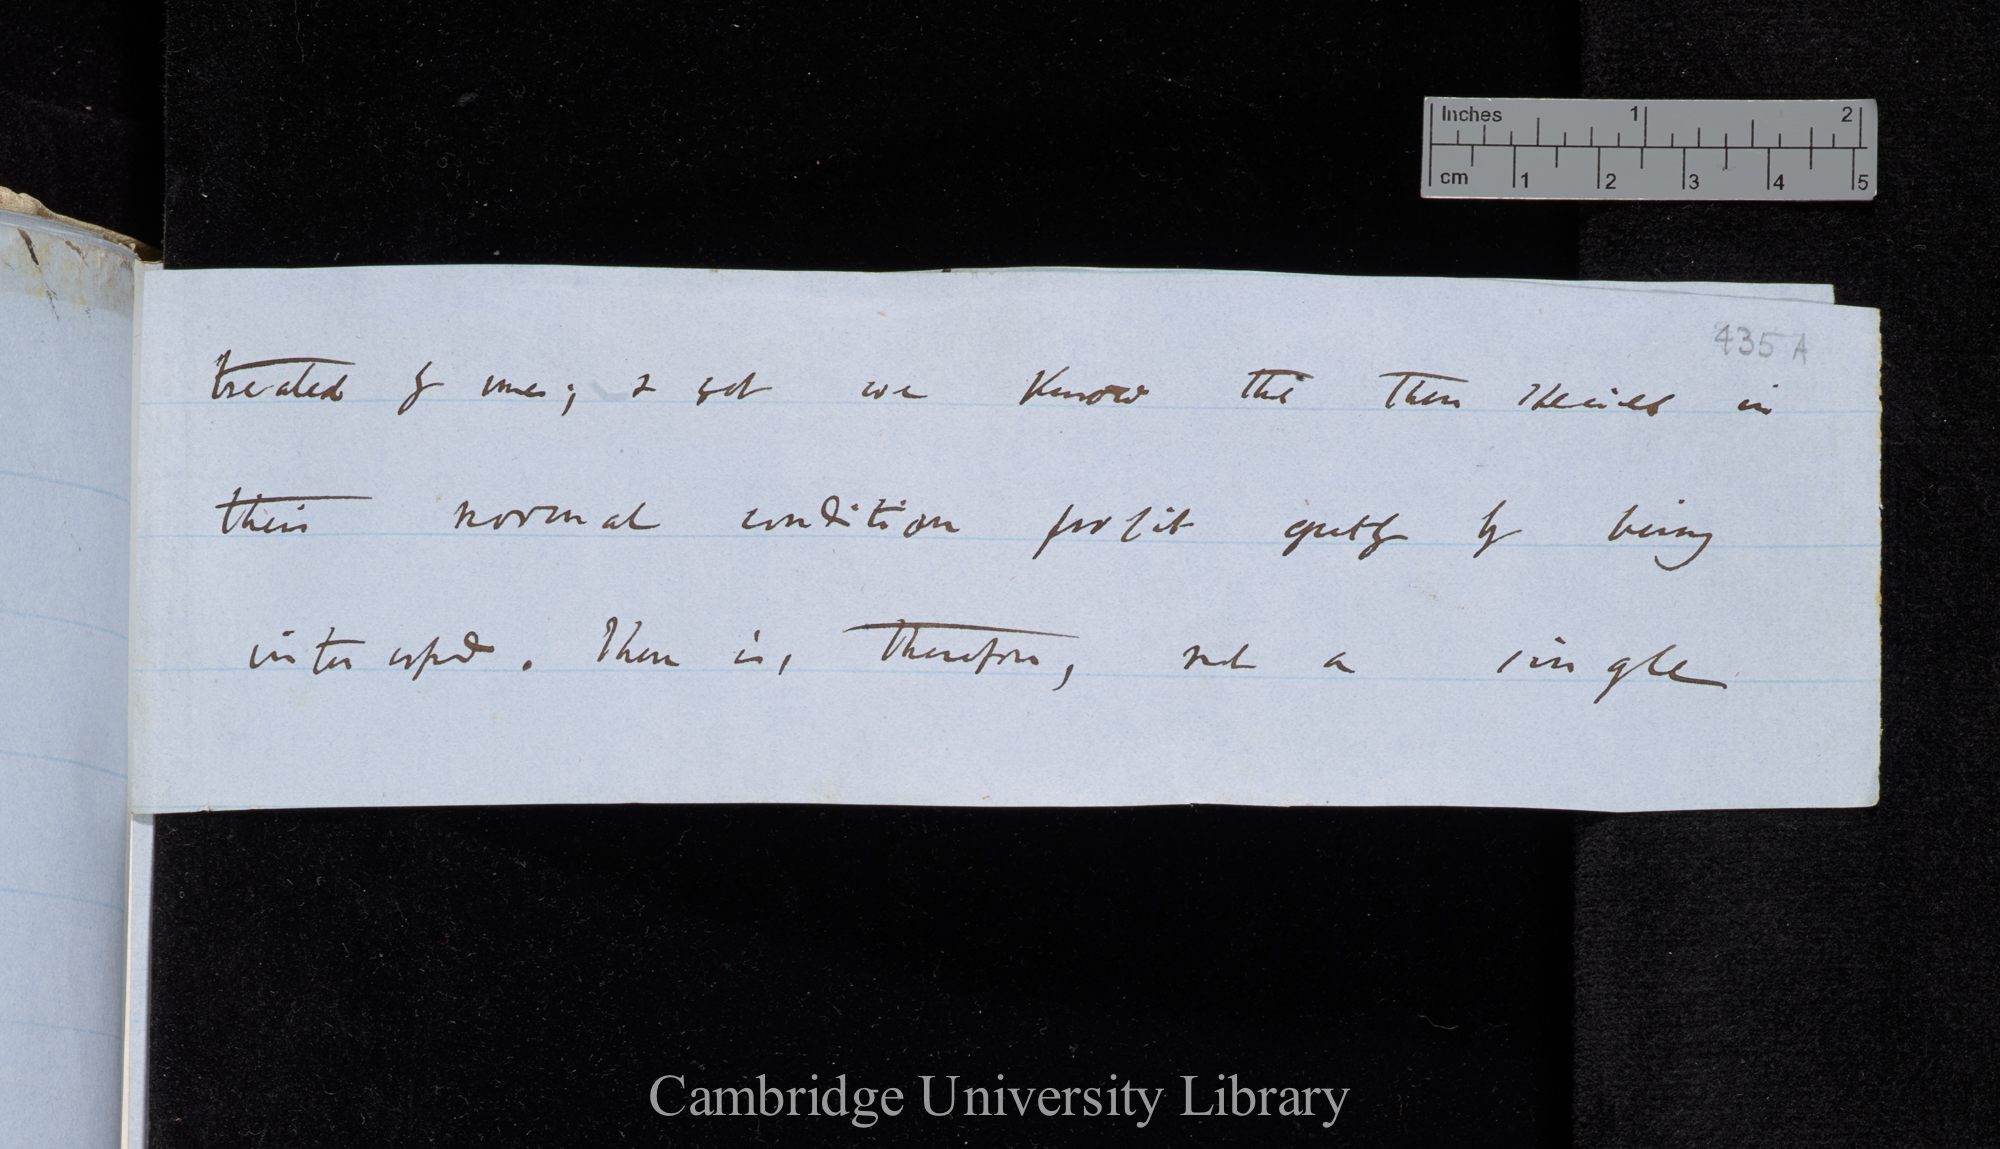 Inches 1 2
cm 1 2 3 4 5
435 A
treated by me; & yet we know that these species in
their normal condition profit greatly by being
intercrossed. There is, therefore, not a single
Cambridge University Library